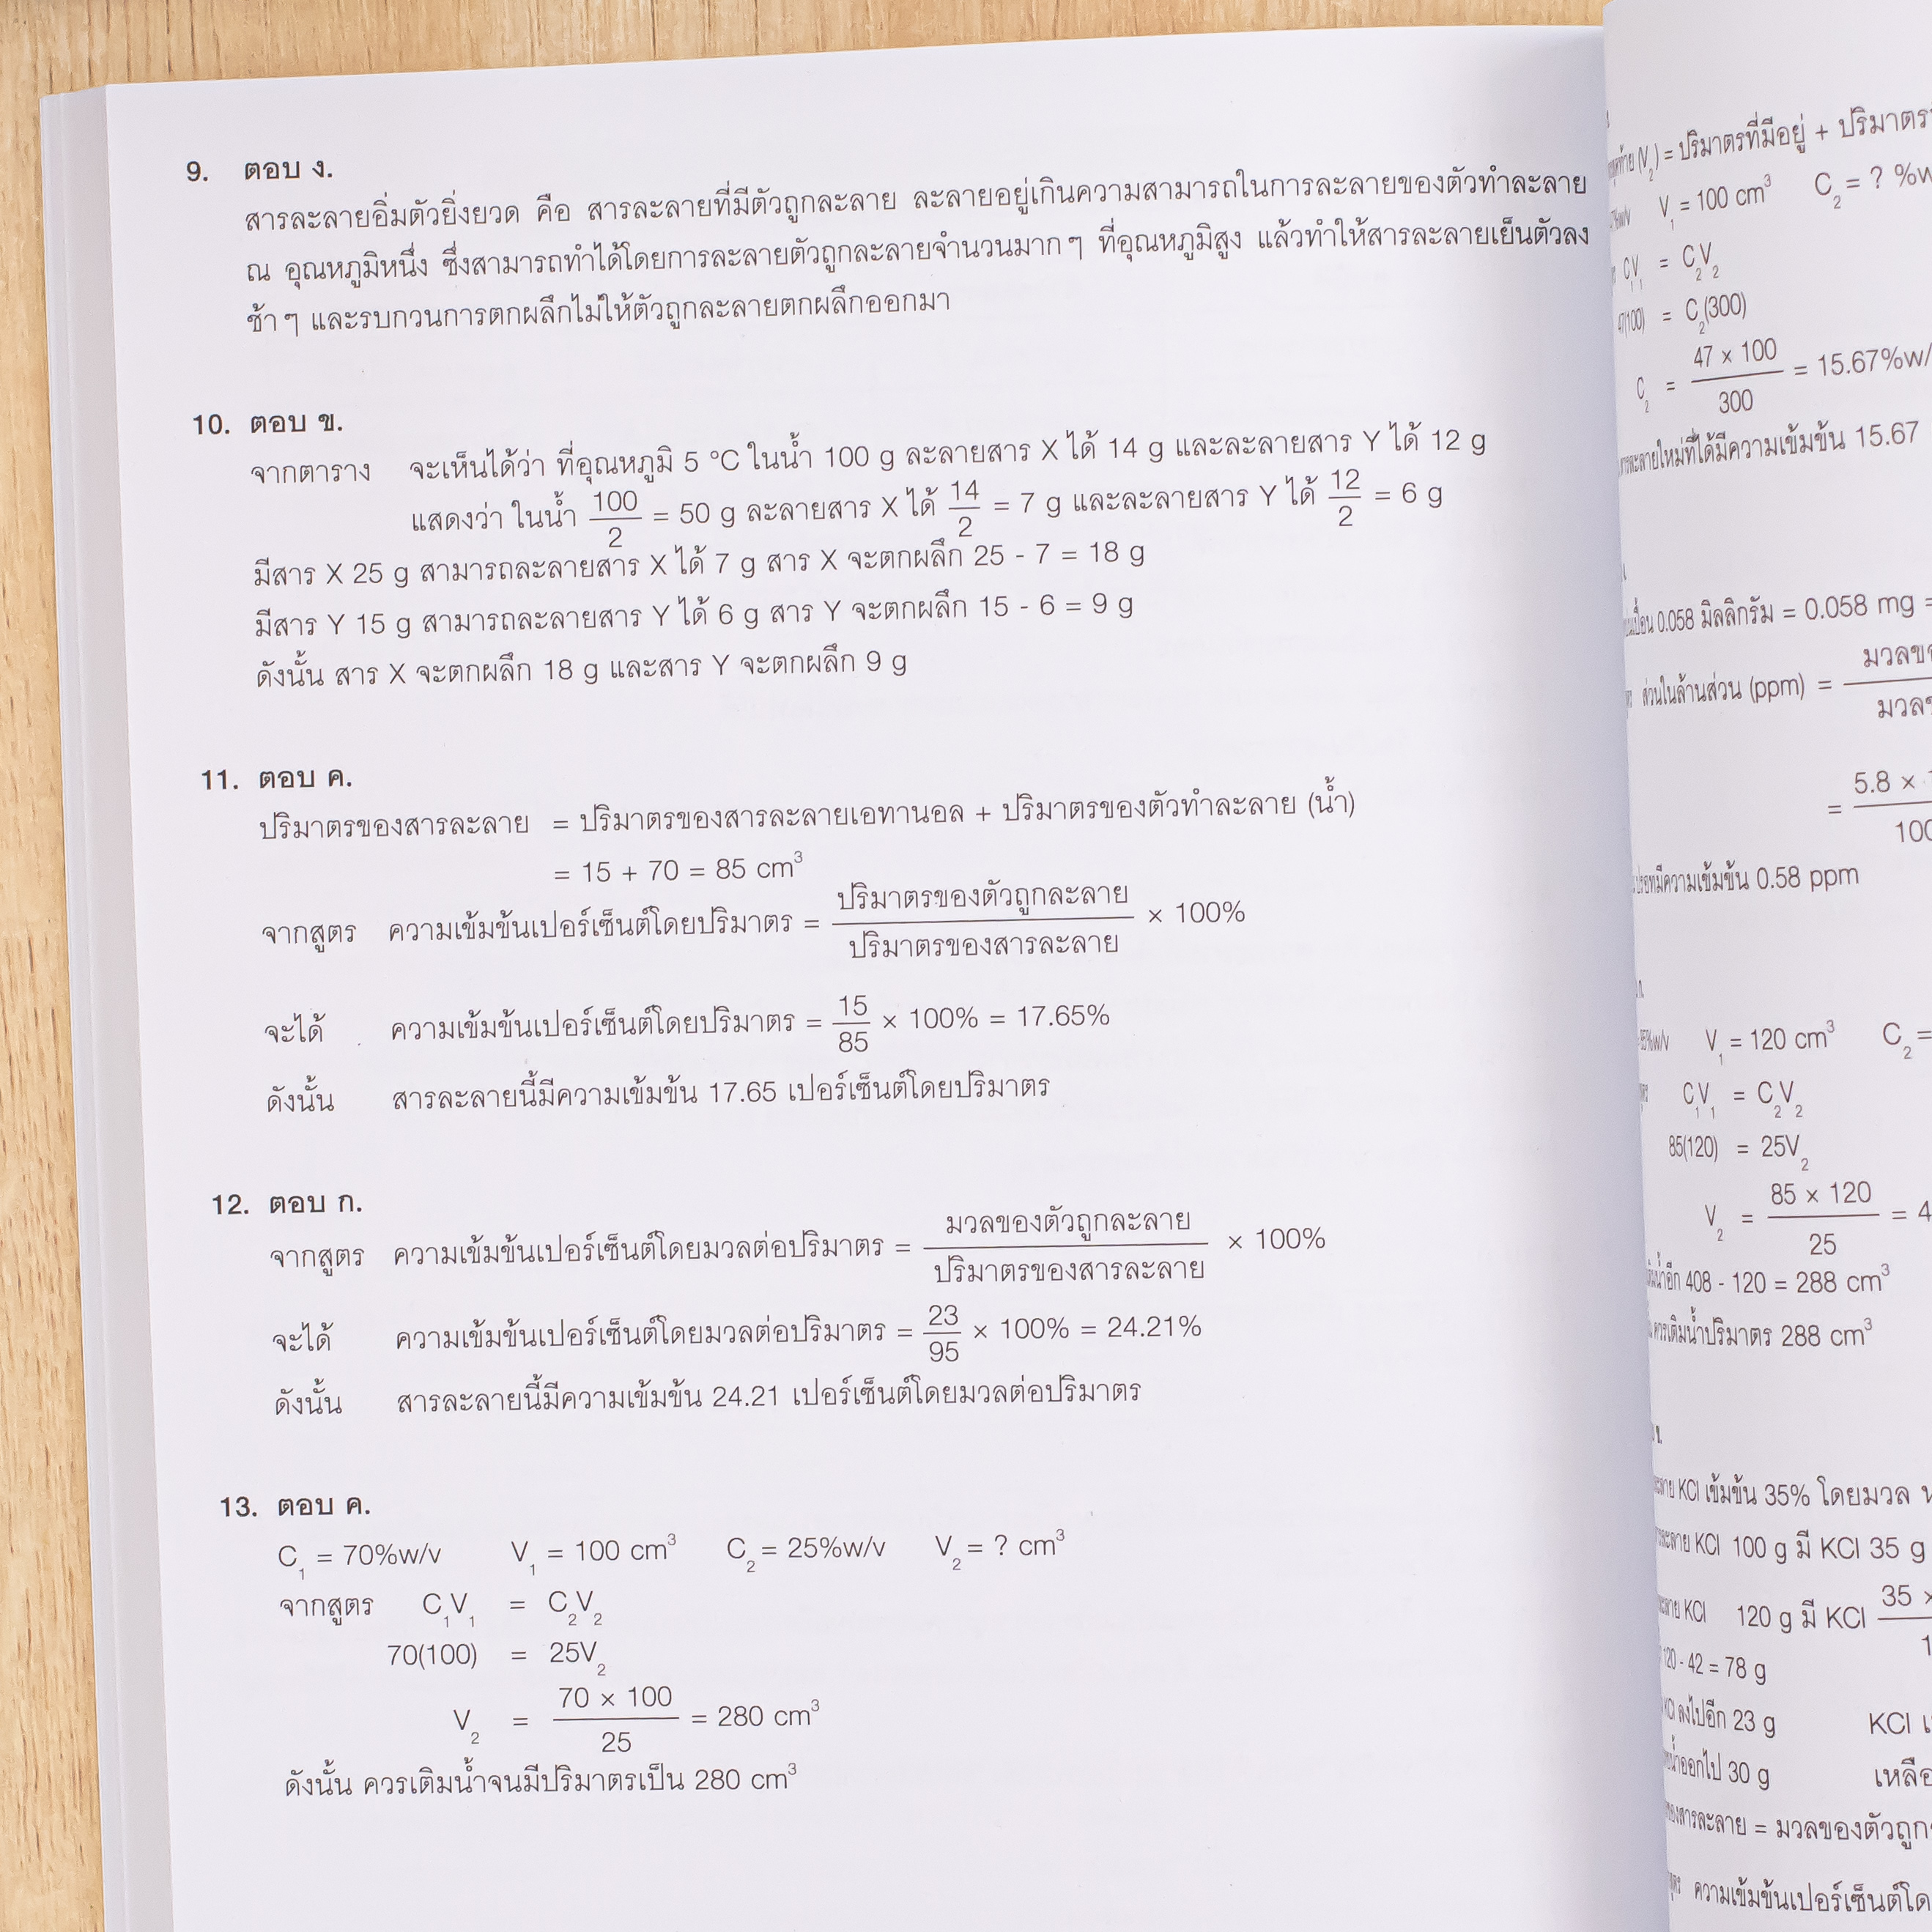 9. ตอบ ง.
สารละลายอิ่มตัวยิ่งยวด คือ สารละลายที่มีตัวถูกละลาย ละลายอยู่เกินความสามารถในการละลายของตัวทำละลาย
ณ อุณหภูมิหนึ่ง ซึ่งสามารถทำได้โดยการละลายตัวถูกละลายจำนวนมาก ๆ ที่อุณหภูมิสูง แล้วทำให้สารละลายเย็นตัวลง
ช้า ๆ และรบกวนการตกผลึกไม่ให้ตัวถูกละลายตกผลึกออกมา
10. ตอบ ข.
จากตาราง จะเห็นได้ว่า ที่อุณหภูมิ 5 °C ในน้ำ 100 g ละลายสาร X ได้ 14 g และละลายสาร Y ได้ 12 g
แสดงว่า ในน้ำ 100/2 = 50 g ละลายสาร X ได้ 14/2 = 7 g และละลายสาร Y ได้ 12/2 = 6 g
มีสาร X 25 g สามารถละลายสาร X ได้ 7 g สาร X จะตกผลึก 25 - 7 = 18 g
มีสาร Y 15 g สามารถละลายสาร Y ได้ 6 g สาร Y จะตกผลึก 15 - 6 = 9 g
ดังนั้น สาร X จะตกผลึก 18 g และสาร Y จะตกผลึก 9 g
11. ตอบ ค.
ปริมาตรของสารละลาย = ปริมาตรของสารละลายเอทานอล + ปริมาตรของตัวทำละลาย (น้ำ)
= 15 + 70 = 85 cm³
จากสูตร ความเข้มข้นเปอร์เซ็นต์โดยปริมาตร = ปริมาตรของตัวถูกละลาย/ปริมาตรของสารละลาย × 100%
จะได้ ความเข้มข้นเปอร์เซ็นต์โดยปริมาตร = 15/85 × 100% = 17.65%
ดังนั้น สารละลายนี้มีความเข้มข้น 17.65 เปอร์เซ็นต์โดยปริมาตร
12. ตอบ ก.
จากสูตร ความเข้มข้นเปอร์เซ็นต์โดยมวลต่อปริมาตร = มวลของตัวถูกละลาย/ปริมาตรของสารละลาย × 100%
จะได้ ความเข้มข้นเปอร์เซ็นต์โดยมวลต่อปริมาตร = 23/95 × 100% = 24.21%
ดังนั้น สารละลายนี้มีความเข้มข้น 24.21 เปอร์เซ็นต์โดยมวลต่อปริมาตร
13. ตอบ ค.
C₁ = 70%w/v V₁ = 100 cm³ C₂ = 25%w/v V₂ = ? cm³
จากสูตร C₁V₁ = C₂V₂
70(100) = 25V₂
V₂ = 70 × 100/25 = 280 cm³
ดังนั้น ควรเติมน้ำจนมีปริมาตรเป็น 280 cm³
(V₂) = ปริมาตรที่มีอยู่ + ปริมาตร
V₁ = 100 cm³ C₂ = ? %w
C₁V₁ = C₂V₂
47(100) = C₂(300)
C₂ = 47 × 100/300 = 15.67%w/
สารละลายใหม่ที่ได้มีความเข้มข้น 15.67
0.058 มิลลิกรัม = 0.058 mg =
ส่วนในล้านส่วน (ppm) =
= 5.8 ×
มีความเข้มข้น 0.58 ppm
V₁ = 120 cm³ C₂ =
C₁V₁ = C₂V₂
85(120) = 25V₂
V₂ = 85 × 120/25 = 4
น้ำอีก 408 - 120 = 288 cm³
ควรเติมน้ำปริมาตร 288 cm³
KCl เข้มข้น 35% โดยมวล
KCl 100 g มี KCl 35 g
KCl 120 g มี KCl 35 ×
120 - 42 = 78 g
ลงไปอีก 23 g KCl
ออกไป 30 g
ของสารละลาย = มวลของตัวถูก
ความเข้มข้นเปอร์เซ็นต์โด